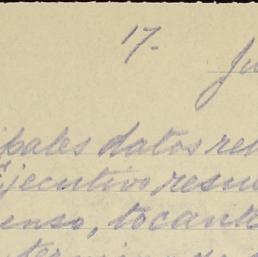 17-
Ju
ipales datos res
Ejecutivo resu
enso, tocante